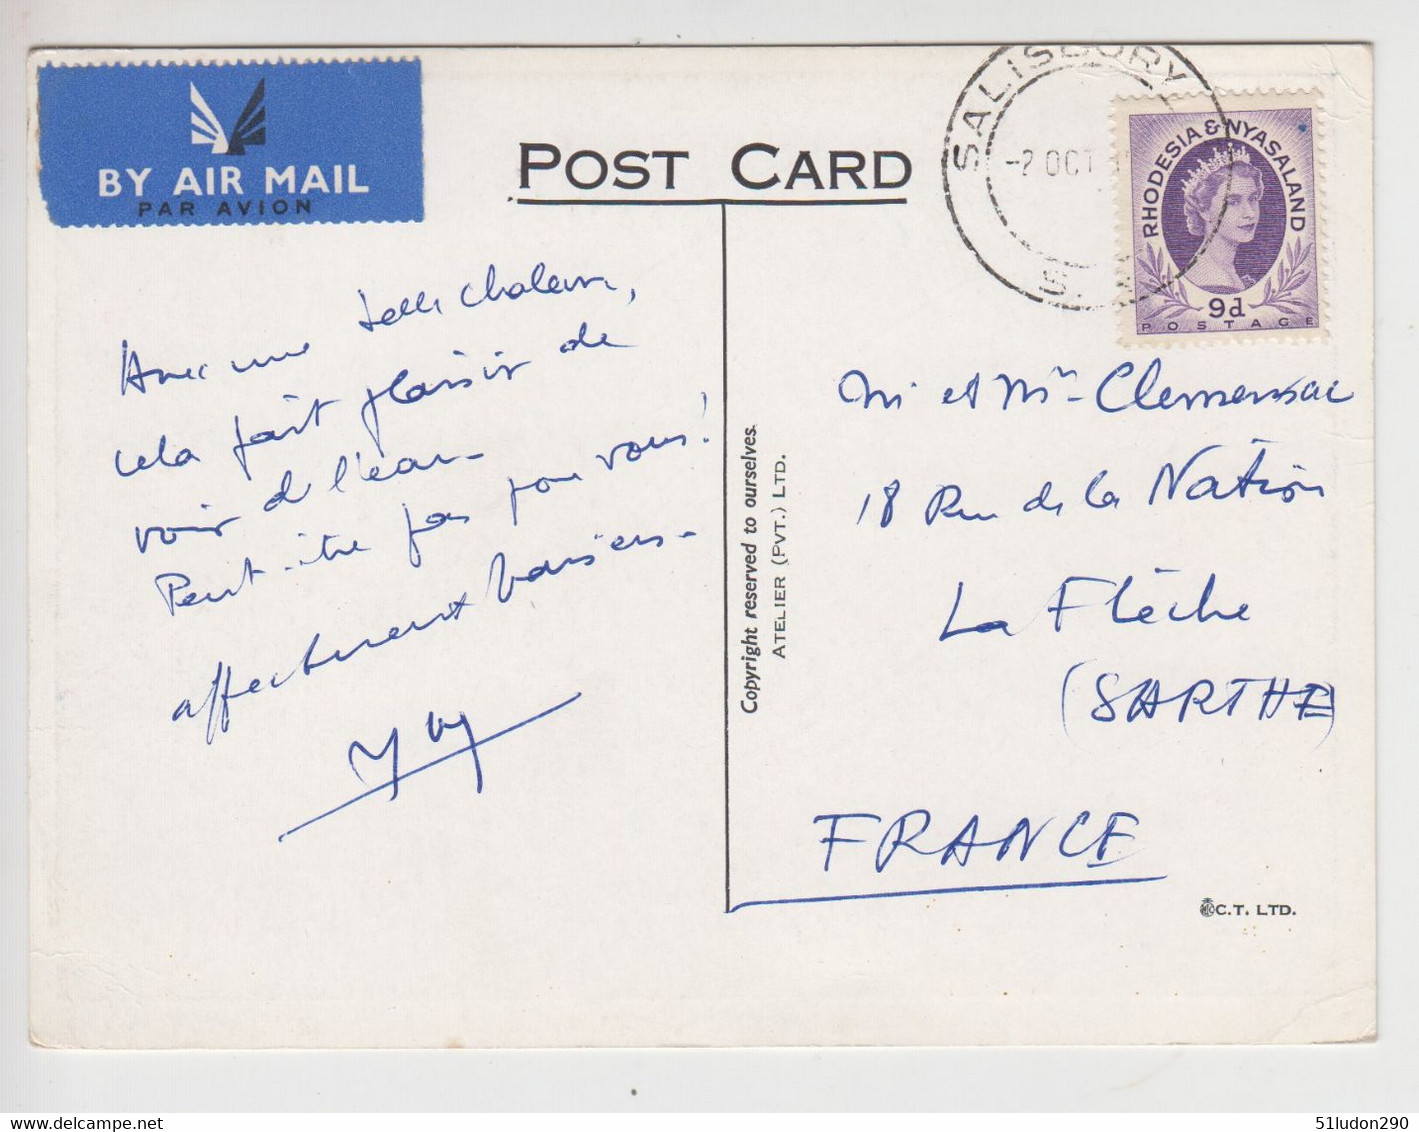 BY AIR MAIL
PAR AVION
POST CARD
SALISBURY
-2 OCT
S.
RHODESIA & NYASALAND
9d
POSTAGE
Avec une telle chaleur,
cela fait plaisir de
voir de l'eau.
Peut-être pas pour vous!
affectueux baisers.
Copyright reserved to ourselves.
ATELIER (PVT.) LTD.
M. et Mme Clemensac
18 Rue de la Nation
La Flèche
(SARTHE)
FRANCE
C.T. LTD.
51ludon290